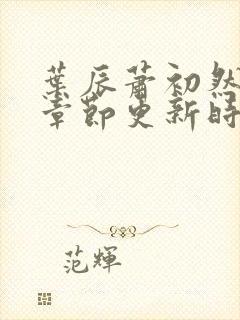 葉辰蕭初然
章節更新時
范輝